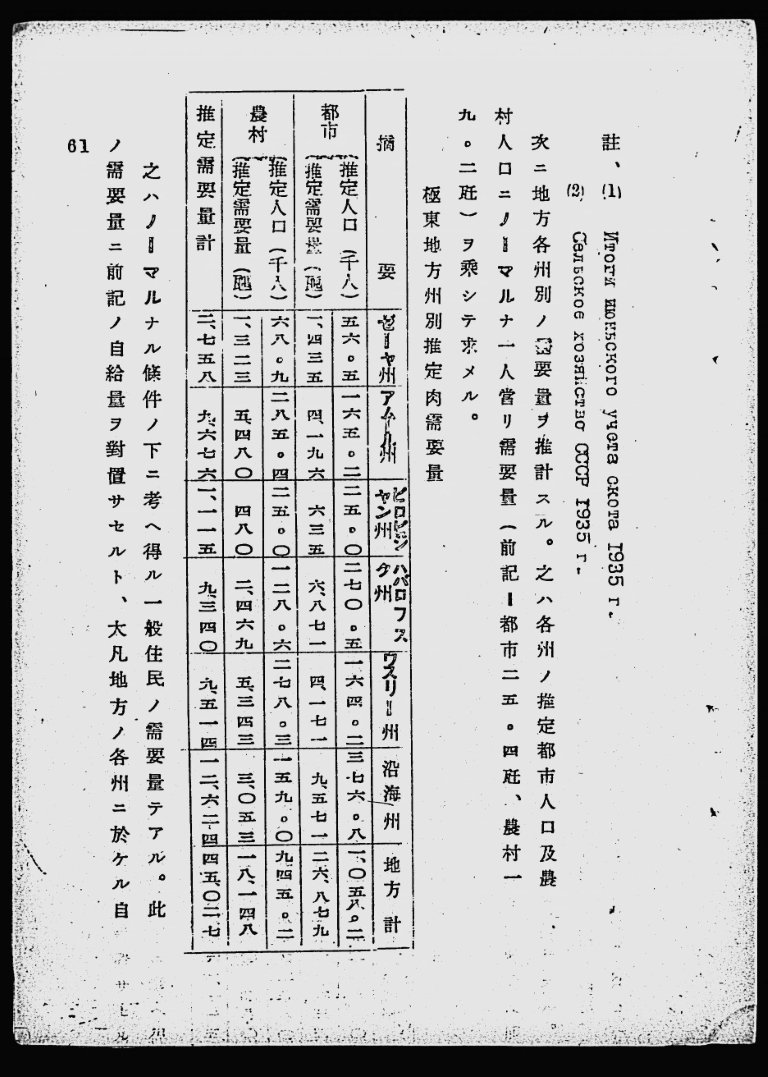 註、(1) Итоги июньского учета скота 1935 г.
(2) Сельское хозяйство СССР 1935 г.
次ニ地方各州別ノ需要量ヲ推計スル。之ハ各州ノ推定都市人口及農
村人口ニノーマルナ一人當リ需要量(前記ー都市二五。四瓩、農村一
九。二瓩)ヲ乘シテ求メル。
極東地方州別推定肉需要量
摘要 ゼーヤ州 アムール州 ビロビジヤン州 ハバロフスク州 ウスリー州 沿海州 地方計
都市 推定人口(千人) 五六。五 一六五。二 二五。〇 二七〇。五 一六四。二 三七六。八 一、〇五八。二
推定需要量(瓲) 一、四三五 四、一九六 六三五 六、八七一 四、一七一 九、五七一 二六、八七九
農村 推定人口(千人) 六八。九 二八五。四 二五。〇 一二八。六 二七八。三 一五九。〇 九四五。二
推定需要量(瓲) 一、三二三 五、四八〇 四八〇 二、四六九 五、三四三 三、〇五三 一八、一四八
推定需要量計 二、七五八 九、六七六 一、一一五 九、三四〇 九、五一四 一二、六二四 四五、〇二七
之ハノーマルナル條件ノ下ニ考ヘ得ル一般住民ノ需要量テアル。此
ノ需要量ニ前記ノ自給量ヲ對置サセルト、大凡地方ノ各州ニ於ケル自
61